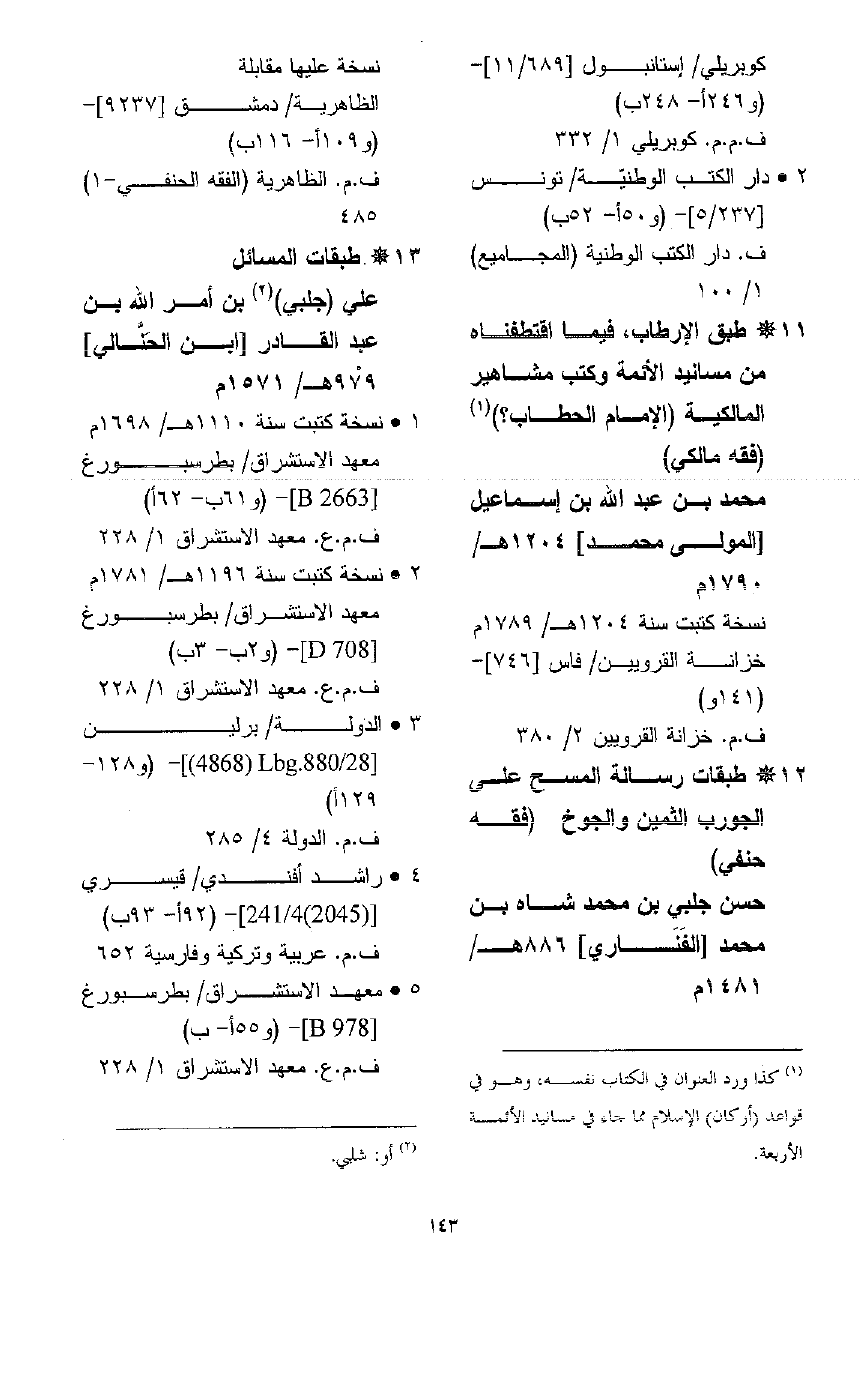 كوبريلي/ إستانبول [١١/٦٨٩]-
(و٢٤٦أ- ٢٤٨ب)
ف.م.م. كوبريلي ١/ ٣٣٢
٢ • دار الكتب الوطنيّة/ تونس
[٥/٢٣٧]- (و٥٠أ- ٥٢ب)
ف. دار الكتب الوطنية (المجاميع)
١/ ١٠٠
١١ ❋ طبق الإرطاب، فيما اقتطفناه
من مسانيد الأئمة وكتب مشاهير
المالكية (الإمام الحطاب؟)(١)
(فقه مالكي)
محمد بن عبد الله بن إسماعيل
[المولى محمد] ١٢٠٤هـ/
١٧٩٠م
نسخة كتبت سنة ١٢٠٤هـ/ ١٧٨٩م
خزانة القرويين/ فاس [٧٤٦]-
(١٤١و)
ف.م. خزانة القرويين ٢/ ٣٨٠
١٢ ❋ طبقات رسالة المسح على
الجورب الثمين والجوخ (فقه
حنفي)
حسن جلبي بن محمد شاه بن
محمد [الفَنَاري] ٨٨٦هـ/
١٤٨١م
(١) كذا ورد العنوان في الكتاب نفسه، وهو في
قواعد (أركان) الإسلام مما جاء في مسانيد الأئمة
الأربعة.
نسخة عليها مقابلة
الظاهرية/ دمشق [٩٢٣٧]-
(و١٠٩أ- ١١٦ب)
ف.م. الظاهرية (الفقه الحنفي-١)
٤٨٥
١٣ ❋ طبقات المسائل
علي (جلبي)(٢) بن أمر الله بن
عبد القادر [ابن الحنَّالي]
٩٧٩هـ/ ١٥٧١م
١ • نسخة كتبت سنة ١١١٠هـ/ ١٦٩٨م
معهد الاستشراق/ بطرسبورغ
[B 2663]- (و٦١ب- ٦٢أ)
ف.م.ع. معهد الاستشراق ١/ ٢٢٨
٢ • نسخة كتبت سنة ١١٩٦هـ/ ١٧٨١م
معهد الاستشراق/ بطرسبورغ
[D 708]- (و٢ب- ٣ب)
ف.م.ع. معهد الاستشراق ١/ ٢٢٨
٣ • الدولة/ برلين
[(4868) Lbg.880/28]- (و١٢٨-
١٢٩أ)
ف.م. الدولة ٤/ ٢٨٥
٤ • راشد أفندي/ قيسري
[241/4(2045)]- (٩٢أ- ٩٣ب)
ف.م. عربية وتركية وفارسية ٦٥٢
٥ • معهد الاستشراق/ بطرسبورغ
[B 978]- (و٥٥أ- ب)
ف.م.ع. معهد الاستشراق ١/ ٢٢٨
(٢) أو: شلبي.
١٤٣